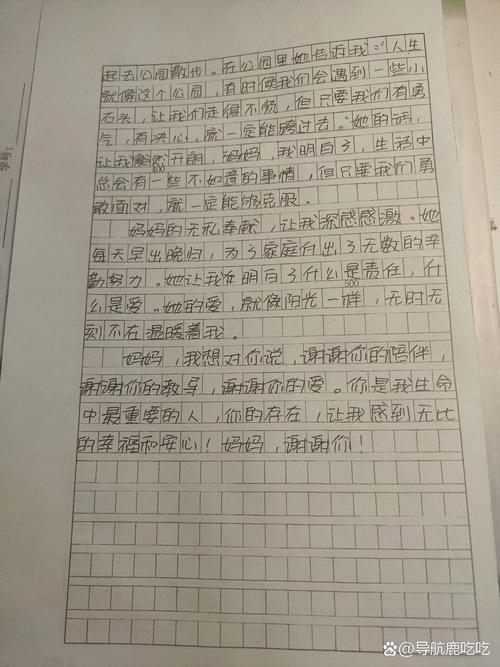 起去公园散步。在公园里她告诉我："人生
就像这个公园，有时候我们会遇到一些小
石头，让我们走得不顺，但只要我们有勇
气，有决心，就一定能跨过去。"她的话，
让我豁然开朗，妈妈，我明白了，生活中
400
总会有一些不如意的事情，但只要我们勇
敢面对，就一定能够克服。
妈妈的无私奉献，让我深感感激。她
每天早出晚归，为了家庭付出了无数的辛
勤努力。她让我明白了什么是责任，什
500
么是爱。她的爱，就像阳光一样，无时无
刻不在温暖着我。
妈妈，我想对你说，谢谢你的陪伴，
谢谢你的教导，谢谢你的爱。你是我生命
中最重要的人，你的存在，让我感到无比
的幸福和安心！妈妈，谢谢你！
学号：
@导航鹿吃吃